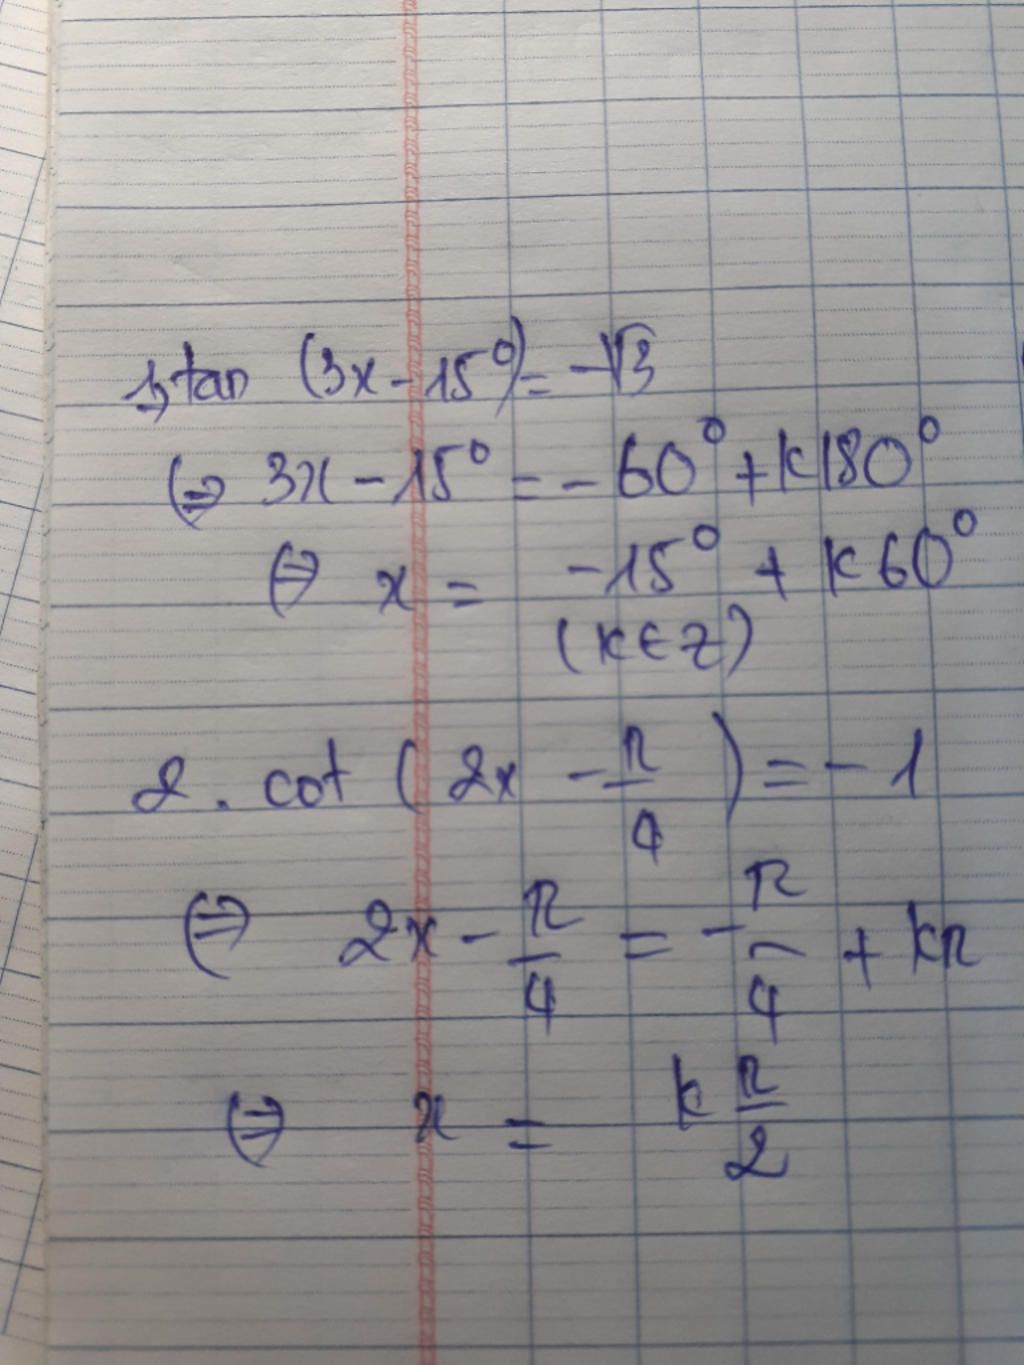 1, tan (3x - 15°) = -√3
⇔ 3x - 15° = - 60° + k180°
⇔ x = -15° + k60°
(k ∈ Z)
2. cot (2x - π/4) = - 1
⇔ 2x - π/4 = - π/4 + kπ
⇔ x = k π/2